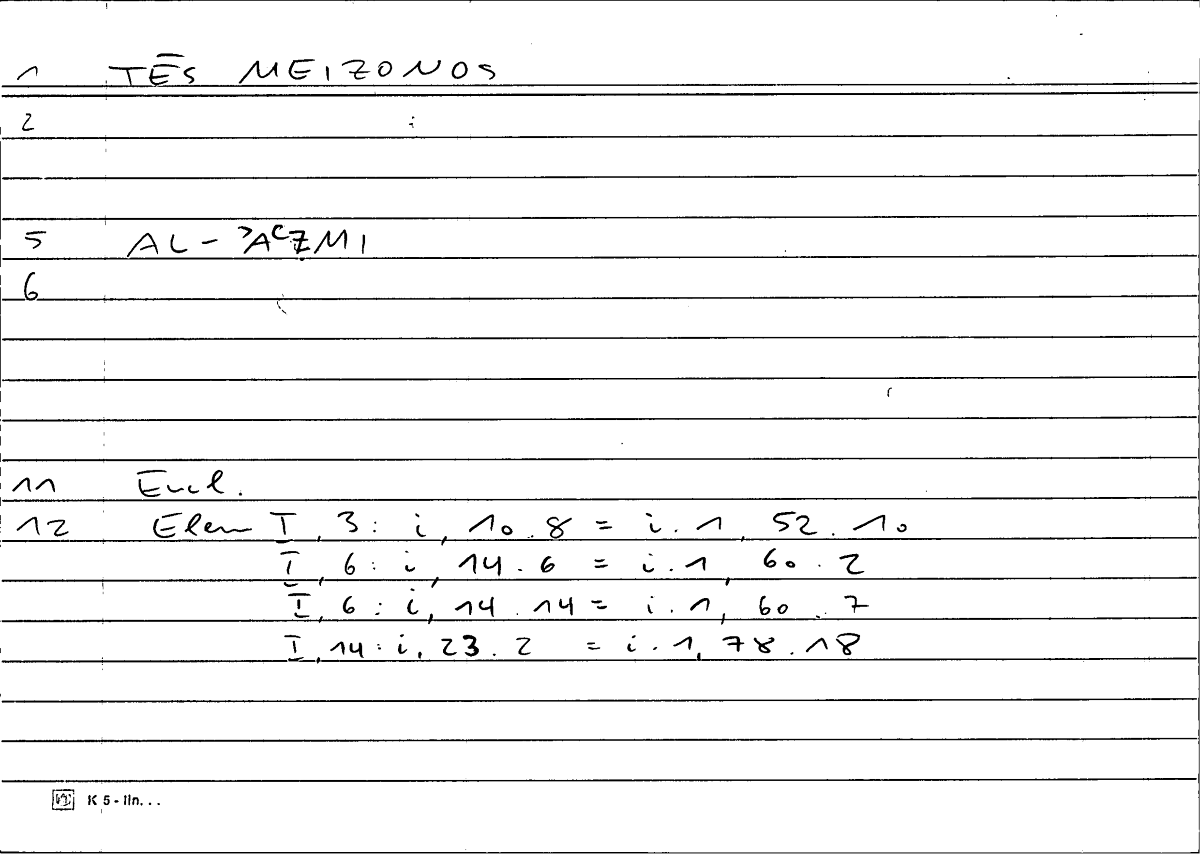 1 TĒS MEIZONOS
2
5 AL-ʾAʿẒMI
6
11 Eucl.
12 Elem I, 3: i, 10.8 = i.1, 52.10
I, 6: i, 14.6 = i.1, 60.2
I, 6: i, 14.14 = i.1, 60.7
I, 14: i, 23.2 = i.1, 78.18
K 5 - lin...